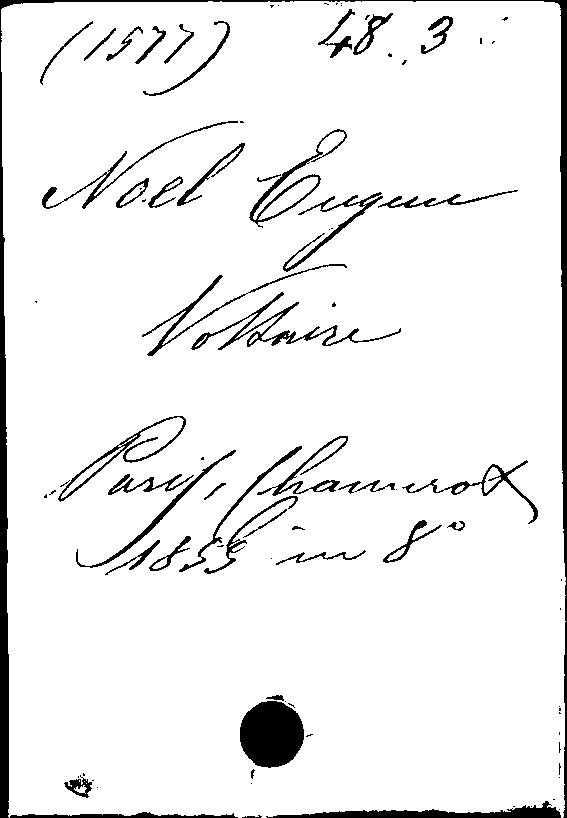 (1577) 48. 3
Noel Eugene
Voltaire
Paris, Chamerot
1855 in 8°